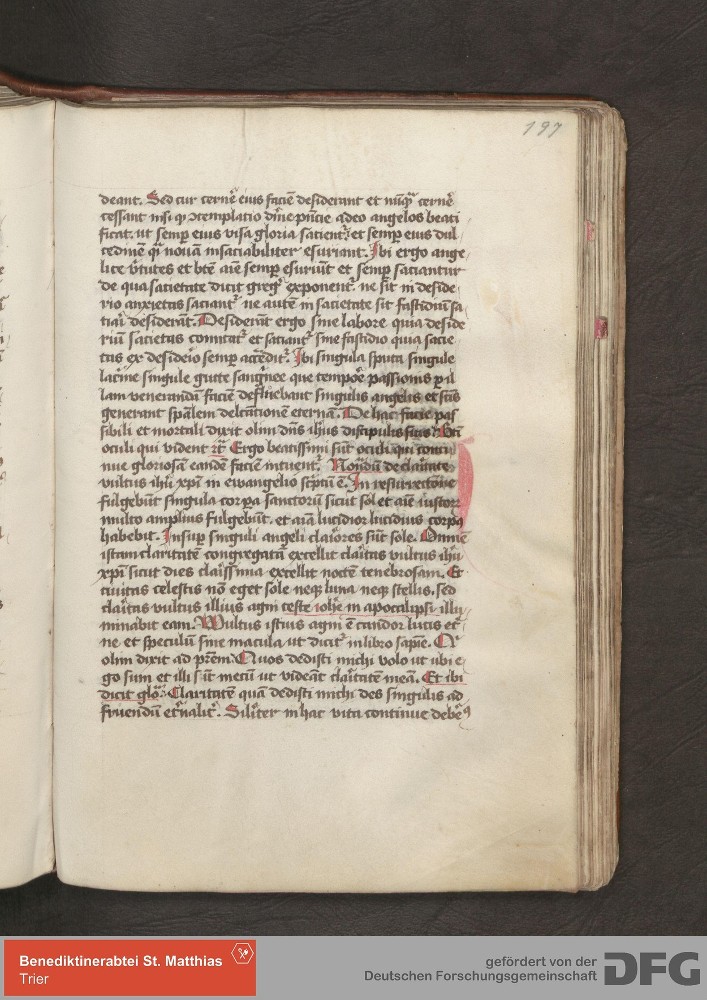 197
deant. Sed cur cernē eius faciē desiderant et nūq̄ cernē
cessant nisi qꝫ ꝯtemplatio dīne p̄ncie adeo angelos beati
ficat. ut semꝑ eius visa gloria satient᷑ et semꝑ eius dul
cedinē qͥ nouā insaciabiliter esuriant. Ibi ergo ange
lice v̄tutes et btē aīe semꝑ esuriūt et semꝑ saciantur
de qua sacietate dicit greg᷑ exponent᷑. ne sit in deside
rio anxietas saciant᷑ ne autē in sacietate sit fastidiū sa
tiati desiderāt. Desiderāt ergo sine labore quia deside
riū sacietas comitat᷑ et saciant᷑ sine fastidio quia sacie
tas ex desiderio semꝑ accēdit᷑. Ibi singula sputa singule
lacͥme singule gutte sangͥnee que tempoꝛe passionis ꝑ il
lam venerandā faciē defluebant singulis angelis et sc̄is
generant spālem delctationē eternā. De hac facie pas
sibili et mortali dixit olim dn̄s ih̄us discipulis suis Bti
oculi qui vident ⁊c̄ Ergo beatissimi sūt oculi qui conti
nue gloriosā eandē faciē intuent᷑. Nondū de claritate
vultus ih̄u xp̄i in ewangelio scͥptū ē. In resurrectione
fulgebūt singula corꝑa sanctorū sicut sol et aīe iustoꝝ
multo amplius fulgebūt. et aīa lucidior lucidius corpꝰ
habebit. Insuꝑ singuli angeli claͥores sūt sole. Omnē
istam claritatē congregatā excellit claͥtas vultus ih̄u
xp̄i sicut dies claͥssima excellit noctē tenebrosam. Et
ciuitas celestis nō eget sole neqꝫ luna neqꝫ stellis. sed
claͥtas vultus illius agni teste ioh̄e in apocalipsi illu
minabit eam. Wultus istius agni ē candor lucis et᷑
ne et speculū sine macula ut dicit᷑ in libro sapiē. Cͥ
olim dixit ad pr̄em. Quos dedisti michi volo ut ubi e
go sum et illi sūt mecū ut videāt claͥtatē meā. Et ibi
dicit glo᷑. Claritatē quā dedisti michi des singulis ad
fruendū et᷑nalit᷑. Silīter in hac vita continue debēꝰ
Benediktinerabtei St. Matthias
Trier
gefördert von der
Deutschen Forschungsgemeinschaft
DFG